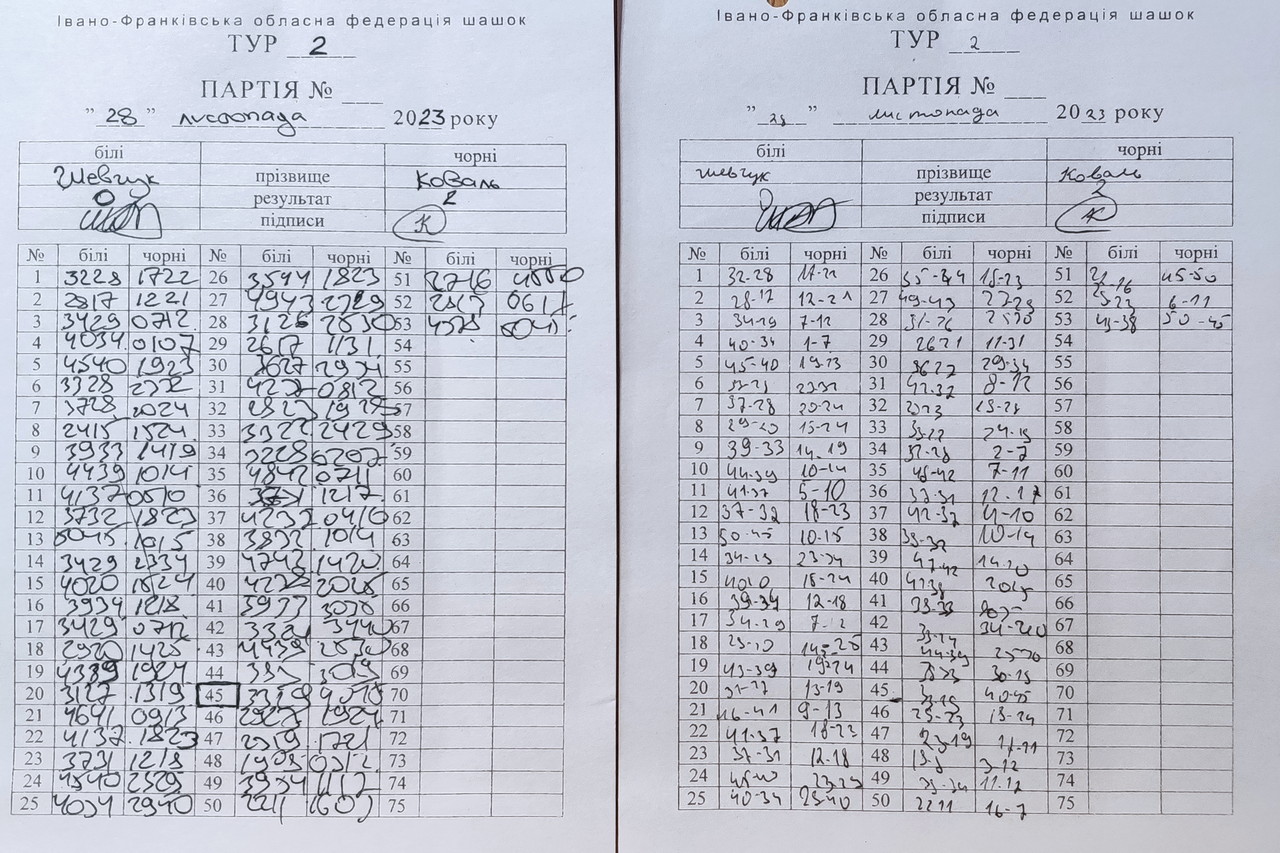 Івано-Франківська обласна федерація шашок
ТУР 2
ПАРТІЯ №
" 28 " листопада 2023 року
білі чорні
Шевчук прізвище Коваль
0 результат 2
підписи К
№ білі чорні № білі чорні № білі чорні
1 3228 1722 26 3544 1823 51 2716 4550
2 2817 1221 27 4943 2329 52 0617
3 3429 0712 28 3126 2530 53
4 4034 0107 29 2617 1131 54
5 4540 1923 30 3627 2934 55
6 3328 31 4237 0812 56
7 3728 2024 32 2823 57
8 2415 1524 33 3322 2429 58
9 3933 1419 34 3228 0207 59
10 4439 1014 35 4842 0711 60
11 4137 0510 36 3731 1217 61
12 3732 1823 37 4237 0410 62
13 5045 1015 38 3832 1014 63
14 3429 2334 39 4742 1420 64
15 4020 1524 40 2025 65
16 3934 1218 41 3933 66
17 3429 0712 42 3440 67
18 2920 1425 43 4439 2530 68
19 4339 1924 44 69
20 3127 1319 45 70
21 4641 0913 46 1924 71
22 4137 1823 47 2319 1721 72
23 3731 1218 48 1908 0312 73
24 4540 2329 49 3934 1117 74
25 4034 2940 50 2211 1607 75
Івано-Франківська обласна федерація шашок
ТУР 2
ПАРТІЯ №
" 28 " листопада 2023 року
білі чорні
Шевчук прізвище Коваль
результат 2
підписи К
№ білі чорні № білі чорні № білі чорні
1 32-28 17-22 26 35-44 18-23 51 45-50
2 28-17 12-21 27 49-43 23-29 52 6-11
3 34-29 7-12 28 31-26 2530 53 43-38 50-45
4 40-34 1-7 29 2621 11-31 54
5 45-40 19-23 30 3627 29-34 55
6 33-28 31 42-37 8-12 56
7 37-28 20-24 32 57
8 29-20 15-24 33 33-22 24-29 58
9 39-33 14-19 34 32-28 2-7 59
10 44-39 10-14 35 48-42 7-11 60
11 41-37 5-10 36 37-31 12-17 61
12 37-32 18-23 37 42-37 4-10 62
13 50-45 10-15 38 38-32 10-14 63
14 34-29 23-34 39 47-42 14-20 64
15 4020 15-24 40 42-38 2025 65
16 39-34 12-18 41 39-33 66
17 34-29 7-12 42 34-40 67
18 29-20 14-25 43 44-39 68
19 43-39 19-24 44 69
20 31-27 13-19 45 40-45 70
21 46-41 9-13 46 19-24 71
22 41-37 18-23 47 23-19 72
23 37-31 12-18 48 19-8 3-12 73
24 45-40 23-29 49 39-34 11-17 74
25 40-34 29-40 50 2211 16-7 75